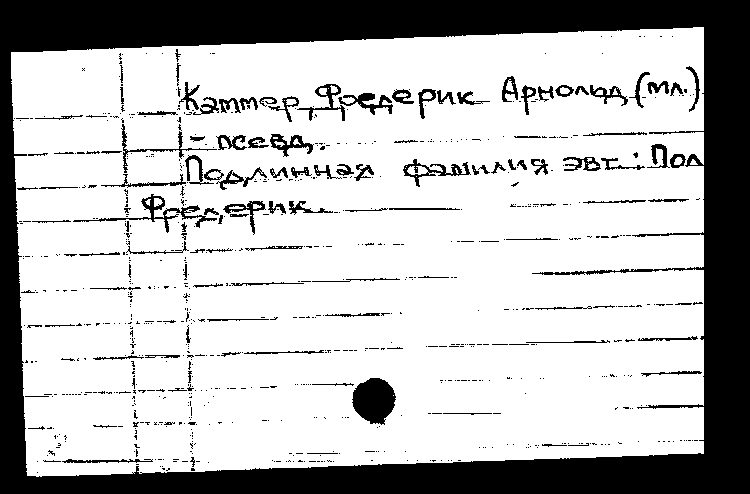 Каттер, Фредерик Арнольд (мл.)
- псевд.
Подлинная фамилия авт.: Пол
Фредерик.